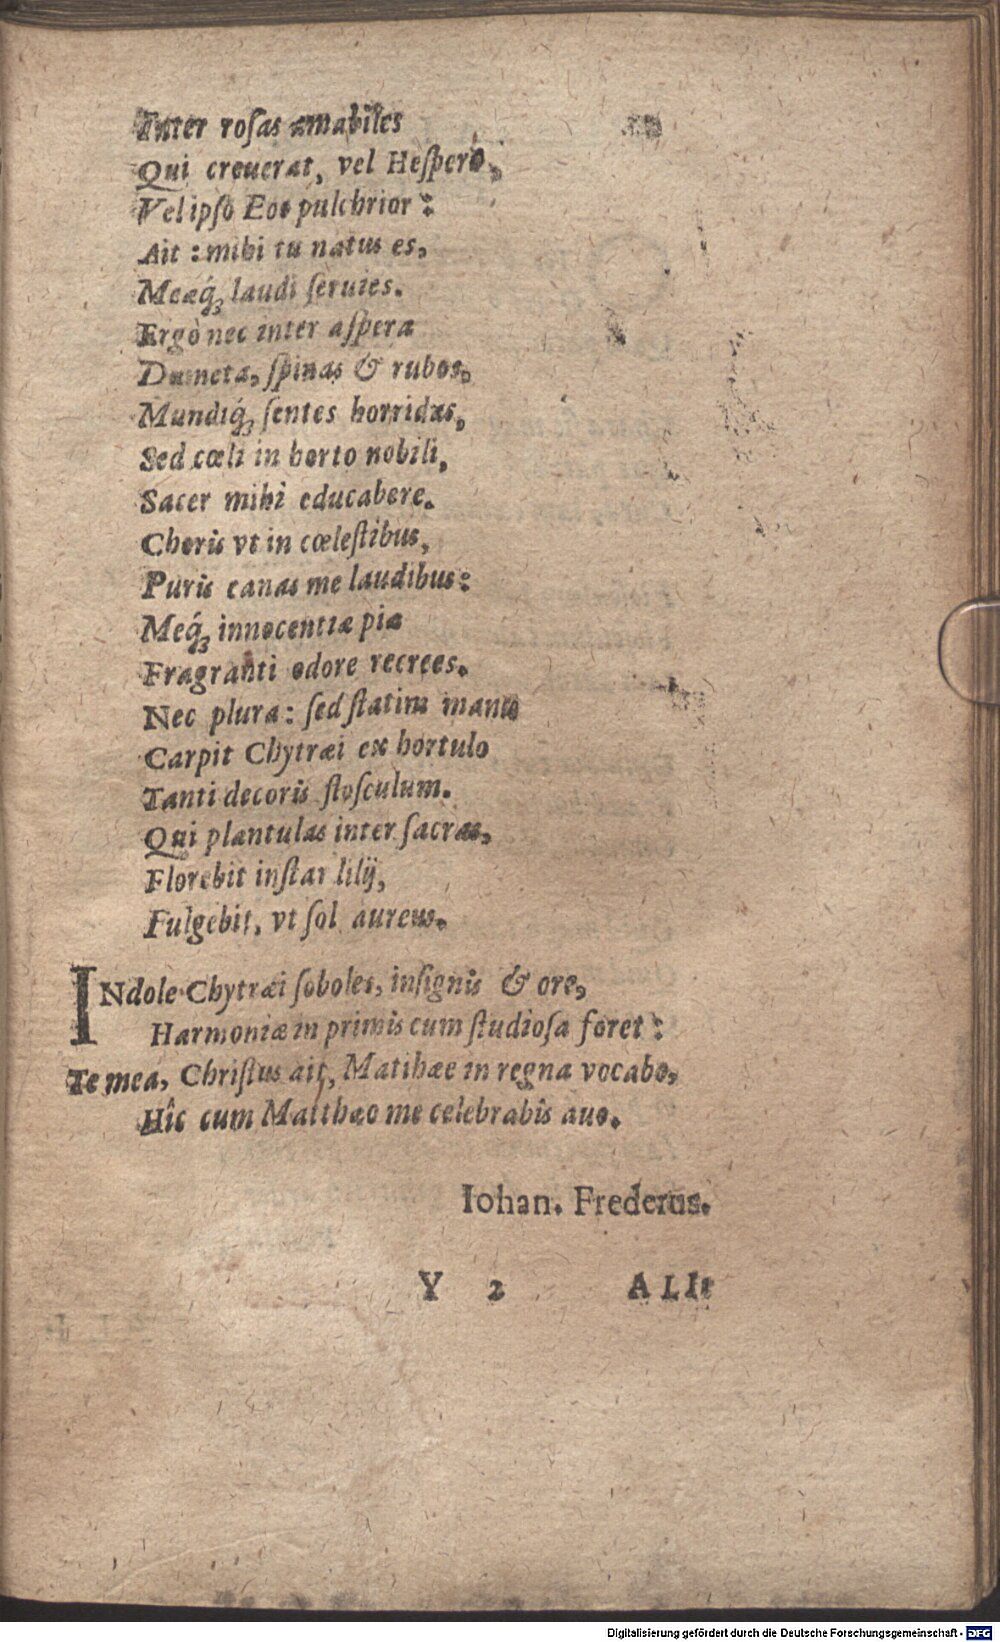 Inter roſas amabiles
Qui creuerat, vel Heſpero,
Vel ipſo Eoo pulchrior:
Ait: mihi tu natus es,
Meæq́ꝫ laudi ſeruies.
Ergò nec inter aſpera
Dumeta, ſpinas & rubos,
Mundiq́ꝫ ſentes horridas,
Sed cœli in horto nobili,
Sacer mihi educabere.
Choris vt in cœleſtibus,
Puris canas me laudibus:
Meq́ꝫ innocentiæ piæ
Fragranti odore recrees.
Nec plura: ſed ſtatim manu
Carpit Chytræi ex hortulo
Tanti decoris floſculum.
Qui plantulas inter ſacras,
Florebit inſtar lilij,
Fulgebit, vt ſol aureus.
INdole Chytræi ſoboles, inſignis & ore,
Harmoniæ in primis cum ſtudioſa foret:
Te mea, Chriſtus ait, Matthæe in regna vocabo,
Hîc cum Matthæo me celebrabis auo.
Iohan. Frederus.
Y 2 ALII
Digitalisierung gefördert durch die Deutsche Forschungsgemeinschaft - DFG